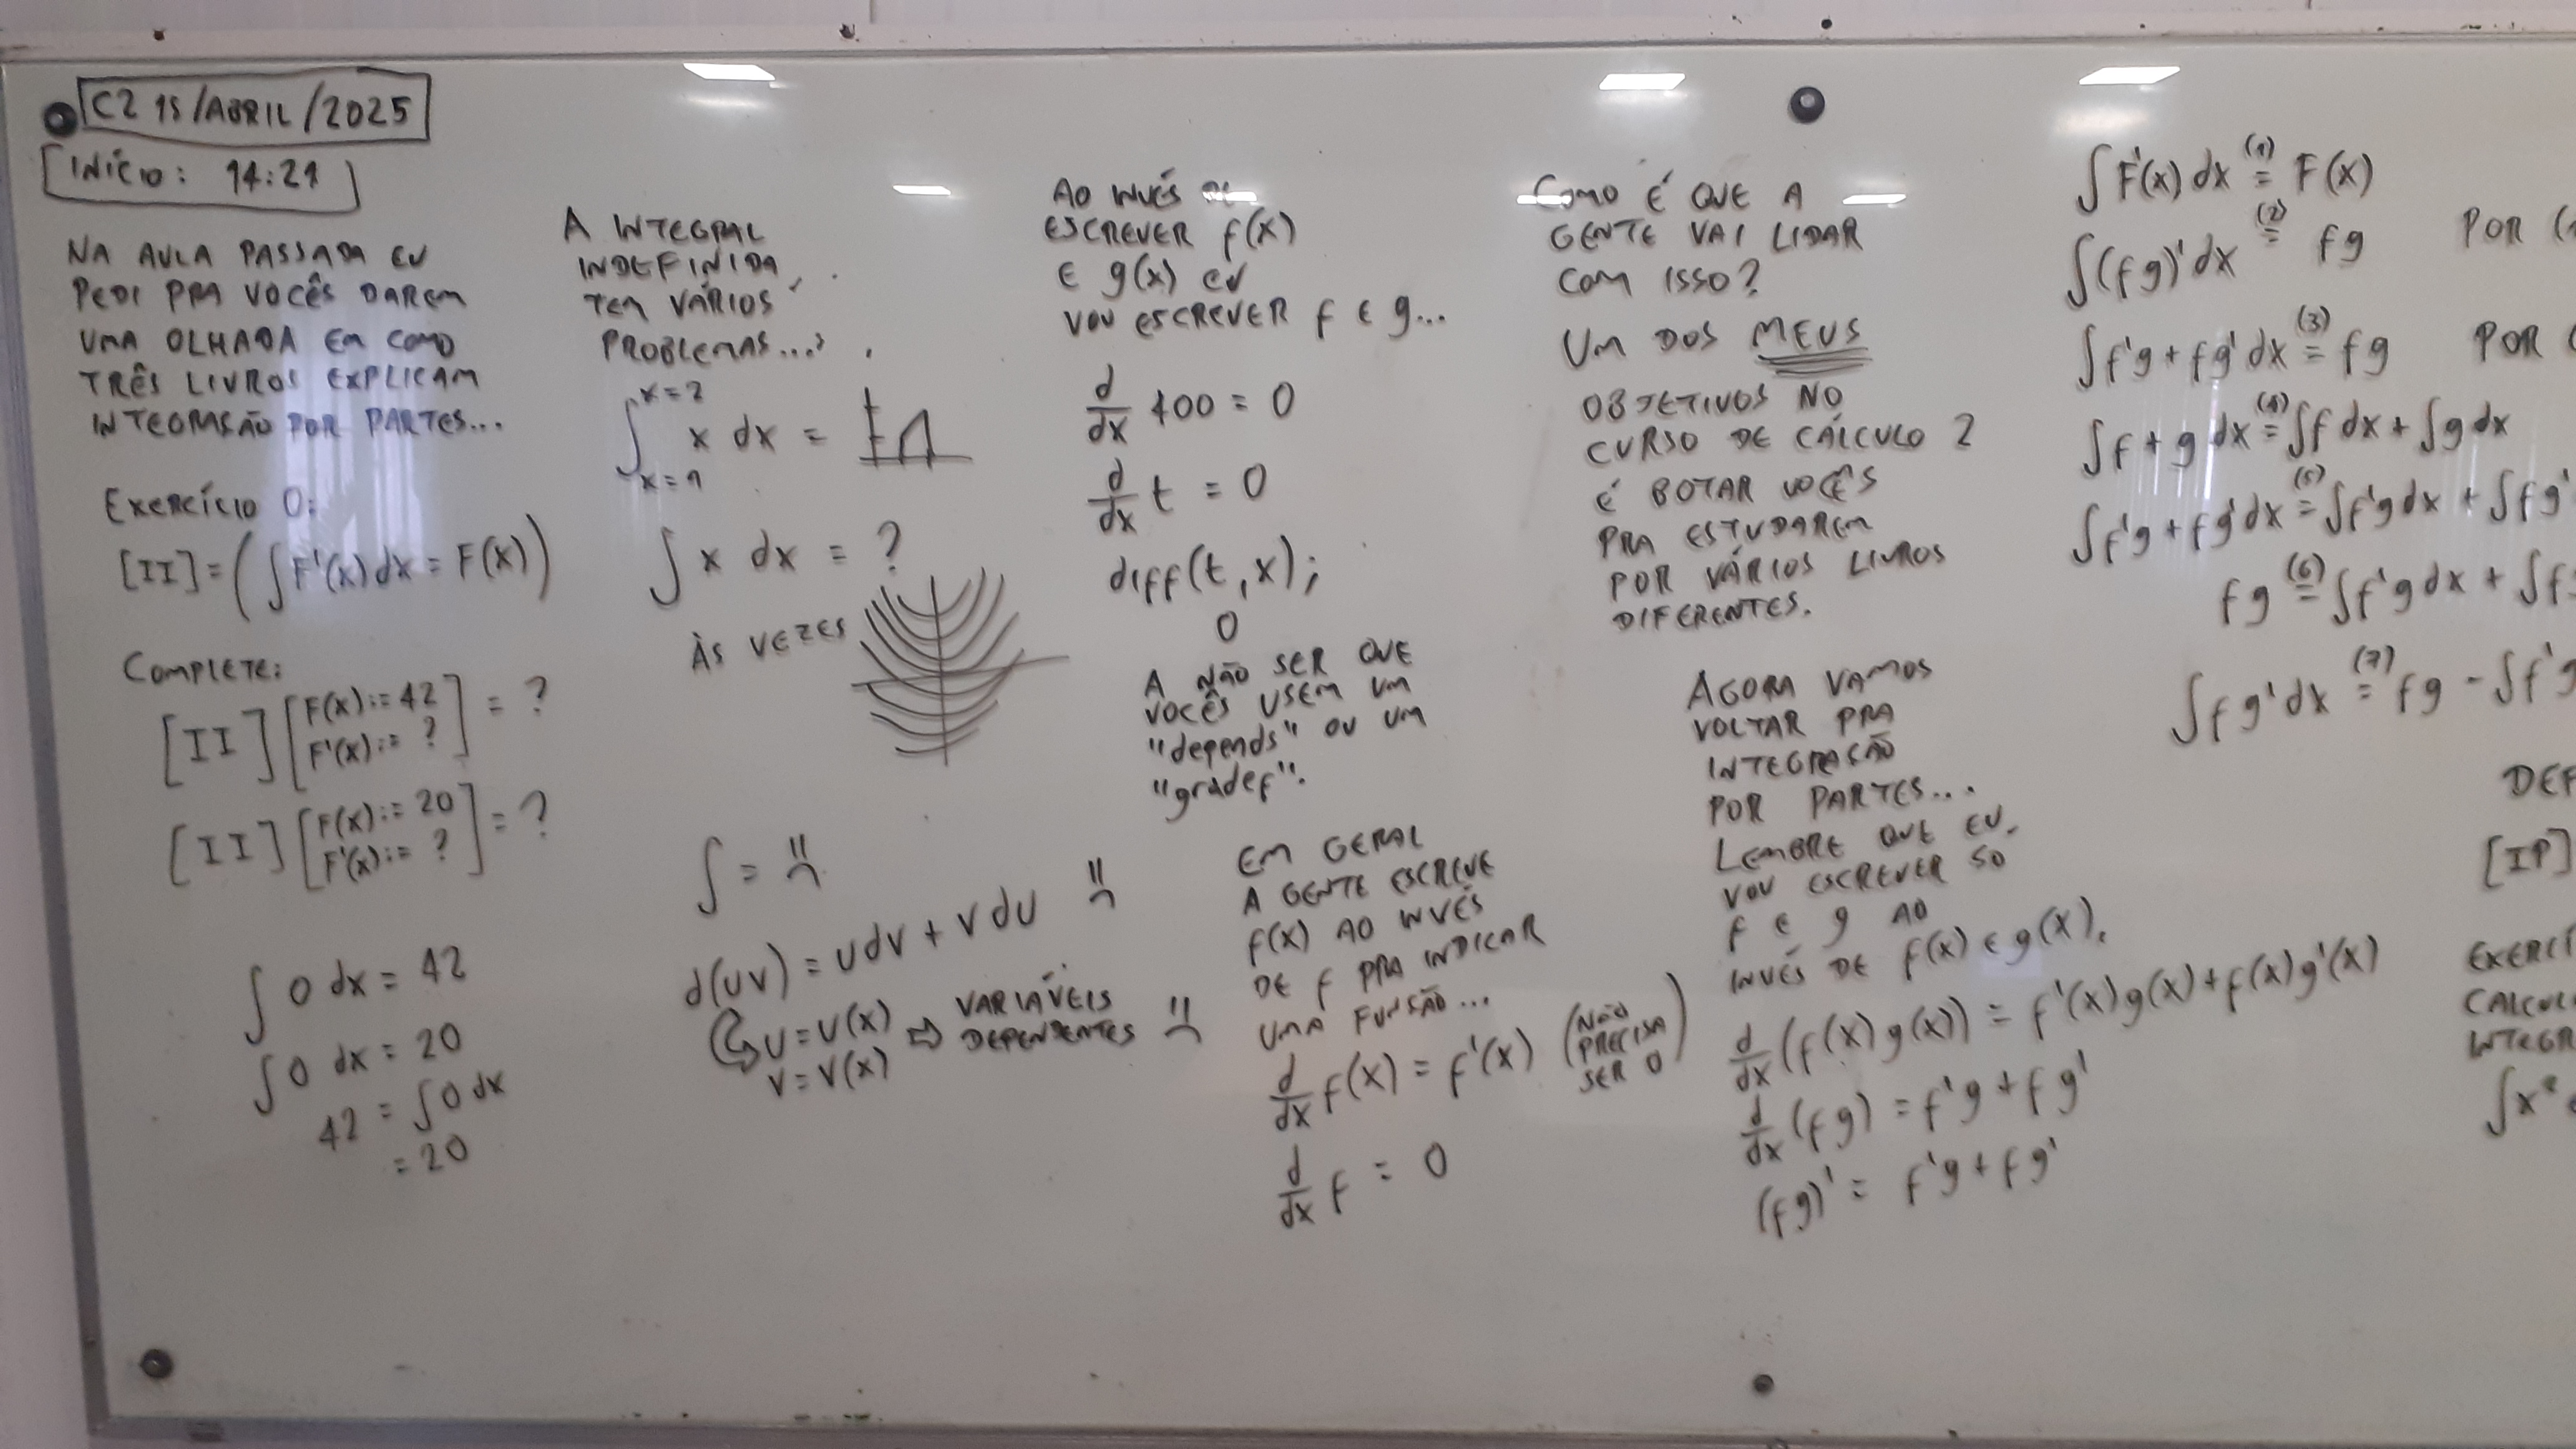 C2 15/ABRIL/2025
INÍCIO: 14:21
NA AULA PASSADA EU
PEDI PRA VOCÊS DAREM
UMA OLHADA EM COMO
TRÊS LIVROS EXPLICAM
INTEGRAÇÃO POR PARTES...
EXERCÍCIO 0:
[II] = (∫F'(x)dx = F(x))
COMPLETE:
[II] [F(x):= 42
F'(x):= ?] = ?
[II] [F(x):= 20
F'(x):= ?] = ?
∫0 dx = 42
∫0 dx = 20
42 = ∫0 dx
= 20
A INTEGRAL
INDEFINIDA
TEM VÁRIOS
PROBLEMAS...
∫_{x=1}^{x=2} x dx =
∫x dx = ?
ÀS VEZES
∫ = :(
d(uv) = udv + vdu :(
u = u(x) ⇒ VARIÁVEIS
v = v(x) DEPENDENTES :(
AO INVÉS DE
ESCREVER f(x)
E g(x) EU
VOU ESCREVER f E g...
d/dx 400 = 0
d/dx t = 0
diff(t,x);
0
A NÃO SER QUE
VOCÊS USEM UM
"depends" OU UM
"gradef".
EM GERAL
A GENTE ESCREVE
f(x) AO INVÉS
DE f PRA INDICAR
UMA FUNÇÃO...
d/dx f(x) = f'(x) (NÃO
PRECISA
SER 0)
d/dx f = 0
COMO É QUE A
GENTE VAI LIDAR
COM ISSO?
UM DOS MEUS
OBJETIVOS NO
CURSO DE CÁLCULO 2
É BOTAR VOCÊS
PRA ESTUDAREM
POR VÁRIOS LIVROS
DIFERENTES.
AGORA VAMOS
VOLTAR PRA
INTEGRAÇÃO
POR PARTES...
LEMBRE QUE EU
VOU ESCREVER SÓ
f E g AO
INVÉS DE f(x) E g(x).
d/dx (f(x)g(x)) = f'(x)g(x)+f(x)g'(x)
d/dx (fg) = f'g + fg'
(fg)' = f'g + fg'
∫F'(x)dx =(1) F(x)
∫(fg)'dx =(2) fg POR (1
∫f'g + fg'dx =(3) fg POR (
∫f + g dx =(4) ∫f dx + ∫g dx
∫f'g + fg'dx =(5) ∫f'g dx + ∫fg'
fg =(6) ∫f'g dx + ∫f
∫fg'dx =(7) fg - ∫f'g
DEF
[IP]
EXERCÍ
CALCUL
INTEGR